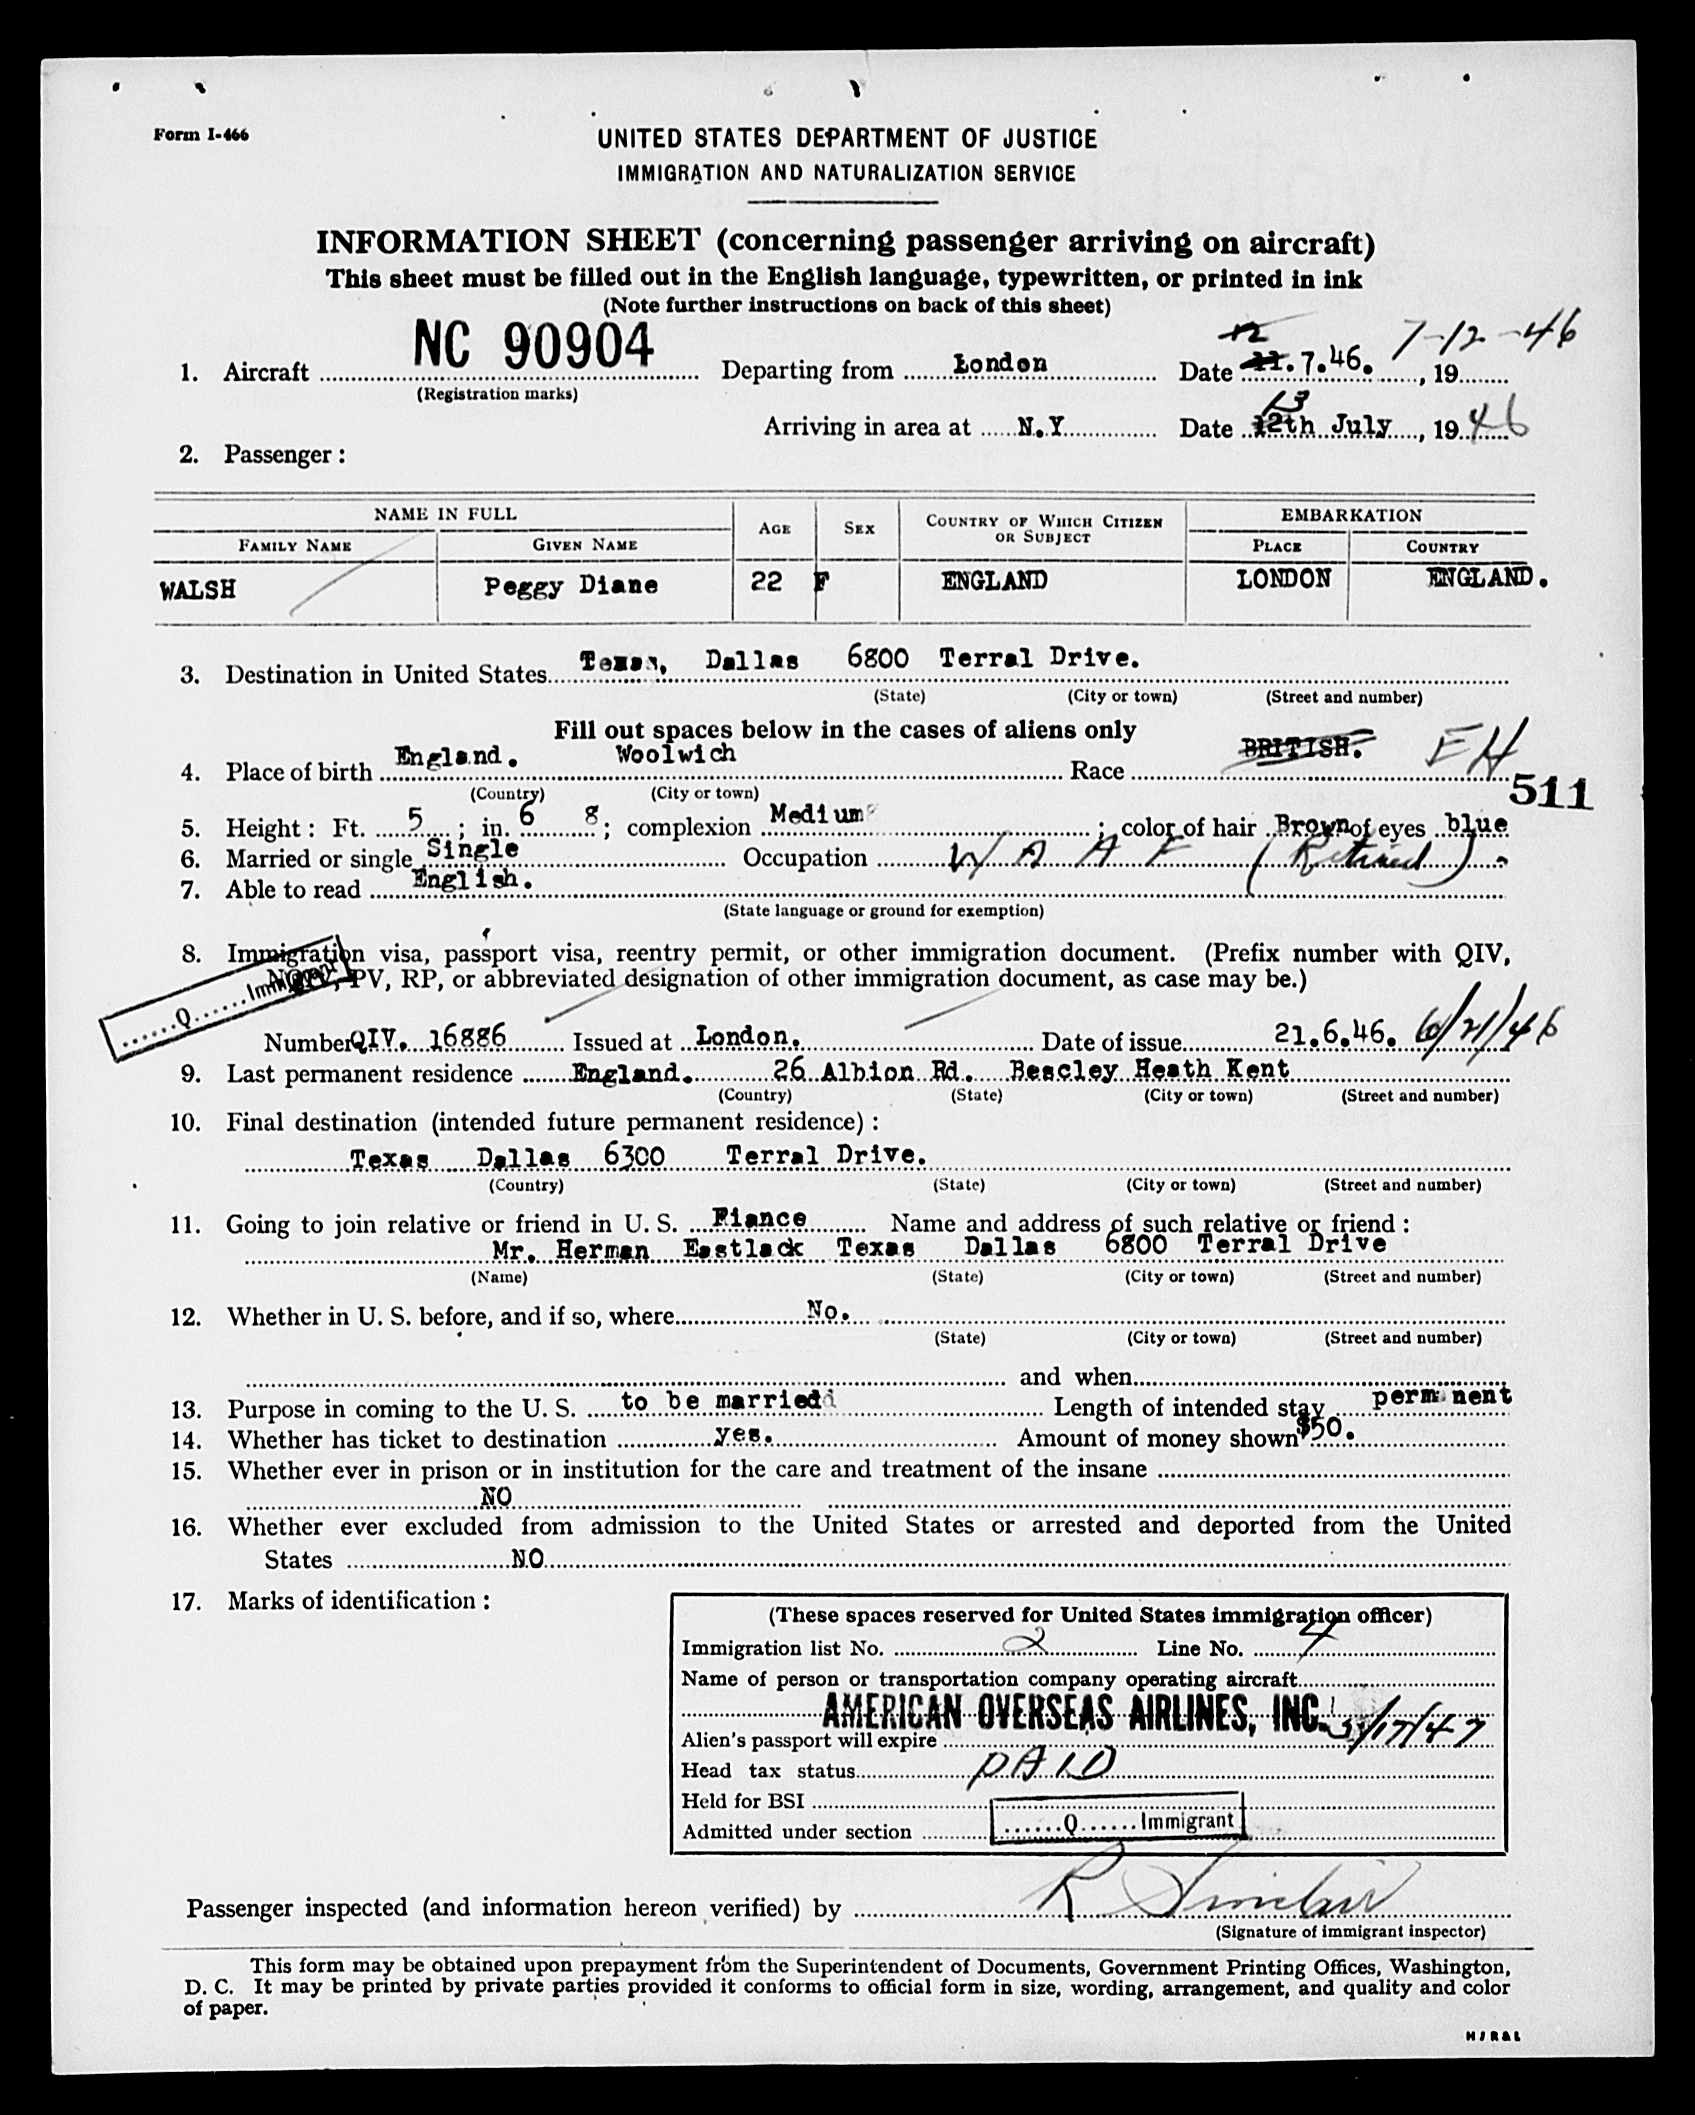 Form I-466
UNITED STATES DEPARTMENT OF JUSTICE
IMMIGRATION AND NATURALIZATION SERVICE
INFORMATION SHEET (concerning passenger arriving on aircraft)
This sheet must be filled out in the English language, typewritten, or printed in ink
(Note further instructions on back of this sheet)
12 7-12-46
1. Aircraft NC 90904 Departing from London Date 11.7.46. , 19
(Registration marks)
13
Arriving in area at N.Y. Date 12th July , 1946
2. Passenger:
NAME IN FULL AGE SEX COUNTRY OF WHICH CITIZEN OR SUBJECT EMBARKATION
FAMILY NAME GIVEN NAME PLACE COUNTRY
WALSH Peggy Diane 22 F ENGLAND LONDON ENGLAND.
3. Destination in United States Texas, Dallas 6800 Terral Drive.
(State) (City or town) (Street and number)
Fill out spaces below in the cases of aliens only
4. Place of birth England. Woolwich Race BRITISH. EH
(Country) (City or town)
511
5. Height: Ft. 5 ; in. 6 8; complexion Medium ; color of hair Brown of eyes blue
6. Married or single Single Occupation W A A F (Retired).
7. Able to read English.
(State language or ground for exemption)
8. Immigration visa, passport visa, reentry permit, or other immigration document. (Prefix number with QIV,
NQIV, PV, RP, or abbreviated designation of other immigration document, as case may be.)
......Q......Immigrant
Number QIV. 16886 Issued at London. Date of issue 21.6.46. 6/21/46
9. Last permanent residence England. 26 Albion Rd. Bescley Heath Kent
(Country) (State) (City or town) (Street and number)
10. Final destination (intended future permanent residence):
Texas Dallas 6300 Terral Drive.
(Country) (State) (City or town) (Street and number)
11. Going to join relative or friend in U. S. Fiance Name and address of such relative or friend:
Mr. Herman Eastlack Texas Dallas 6800 Terral Drive
(Name) (State) (City or town) (Street and number)
12. Whether in U. S. before, and if so, where No.
(State) (City or town) (Street and number)
and when
13. Purpose in coming to the U. S. to be married Length of intended stay permanent
14. Whether has ticket to destination yes. Amount of money shown $50.
15. Whether ever in prison or in institution for the care and treatment of the insane
NO
16. Whether ever excluded from admission to the United States or arrested and deported from the United
States NO
17. Marks of identification:
(These spaces reserved for United States immigration officer)
Immigration list No. 2 Line No. 4
Name of person or transportation company operating aircraft
AMERICAN OVERSEAS AIRLINES, INC.
Alien's passport will expire 5/17/47
Head tax status PAID
Held for BSI
Admitted under section ......Q......Immigrant
Passenger inspected (and information hereon verified) by R Sinclair
(Signature of immigrant inspector)
This form may be obtained upon prepayment from the Superintendent of Documents, Government Printing Offices, Washington,
D. C. It may be printed by private parties provided it conforms to official form in size, wording, arrangement, and quality and color
of paper.